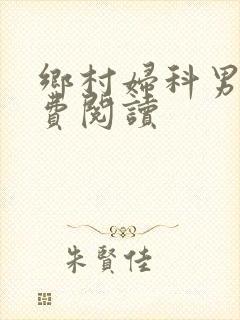 鄉村婦科男
費閱讀
朱賢佳